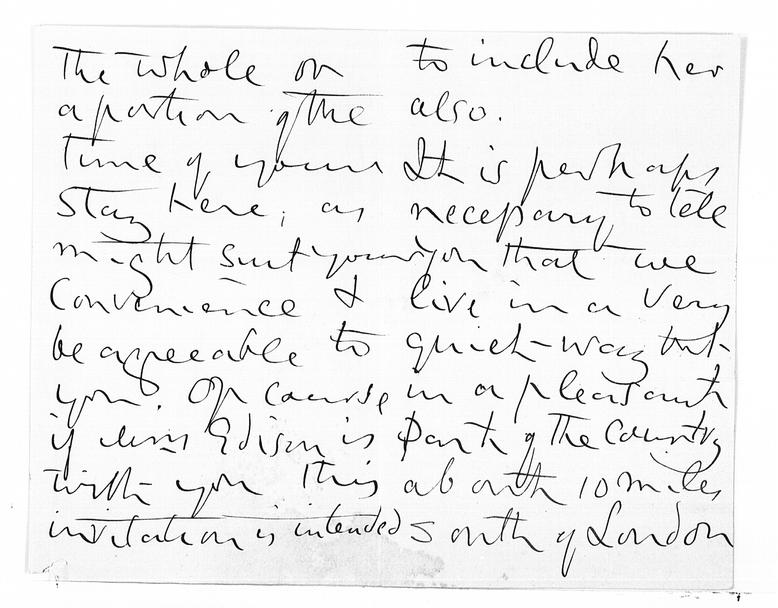 The whole or
a portion of the
time of your
stay here, as
might suit your
convenience &
be agreeable to
you. Of course
if Mrs Edison is
with you this
invitation is intended
to include her
also.
It is perhaps
necessary to tell
you that we
live in a very
quiet way but
in a pleasant
part of the country
about 10 miles
south of London